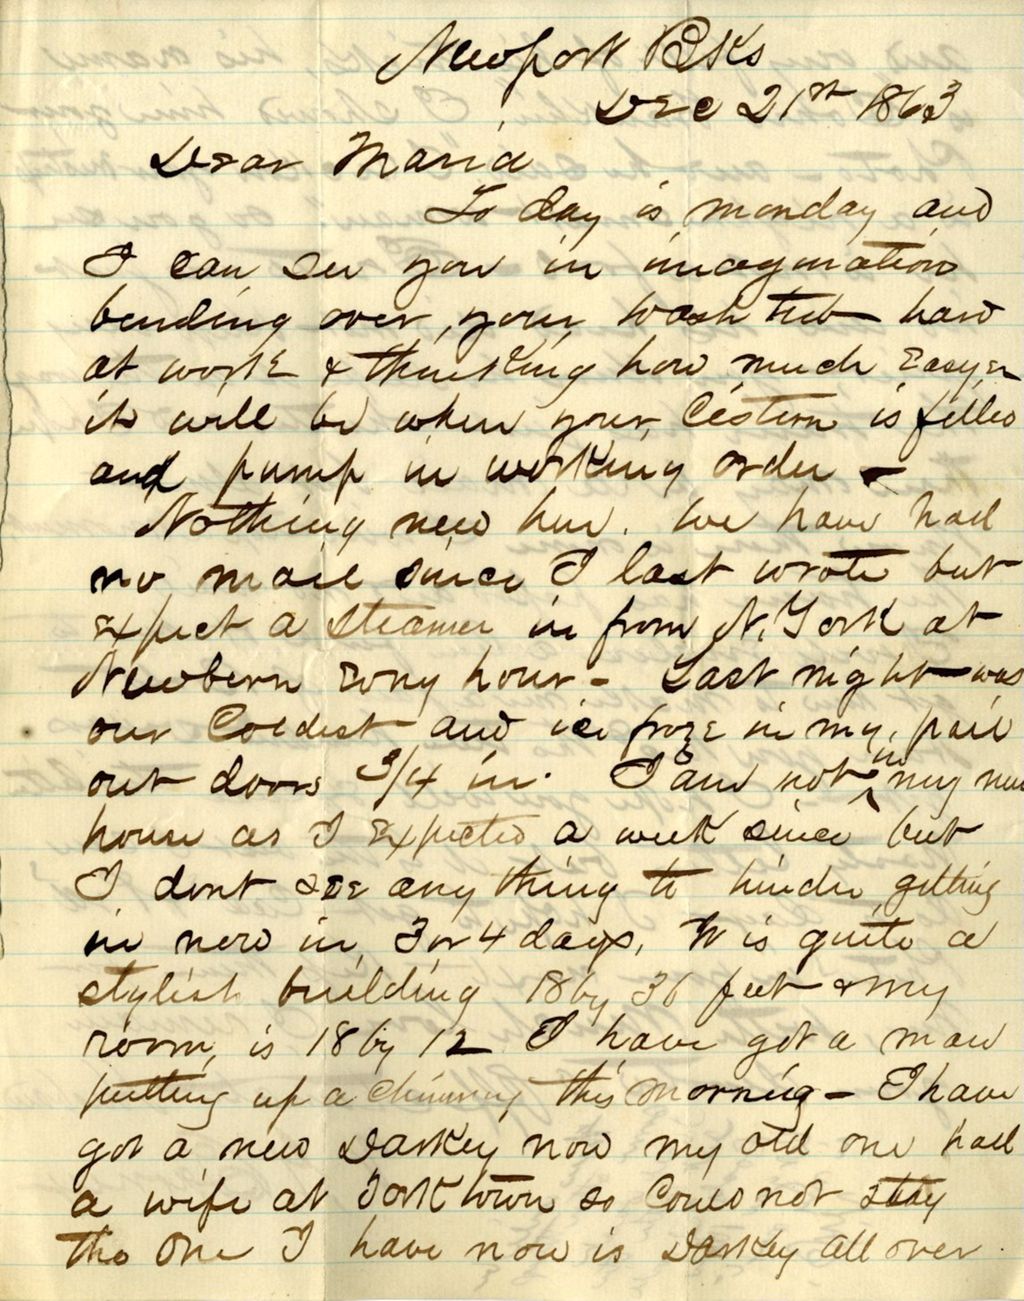 Newport Bks
Dec 21st 1863
Dear Maria
To day is monday and
I can see you in imagination
bending over your wash tub hard
at work & thinking how much easyer
it will be when your Cistern is filled
and pump in working order -
Nothing new here. We have had
no mail since I last wrote but
expect a steamer in from N. York at
Newbern every hour - Last night was
our Coldest and ice froze in my pail
out doors 3/4 in. I am not in my new
house as I expected a week since but
I dont see any thing to hinder getting
in now in 3 or 4 days, It is quite a
stylish building 18 by 36 feet & my
room, is 18 by 12 I have got a man
putting up a chimney this morning - I have
got a new Darkey now my old one had
a wife at Yorktown so Could not stay
the One I have now is Darkey all over